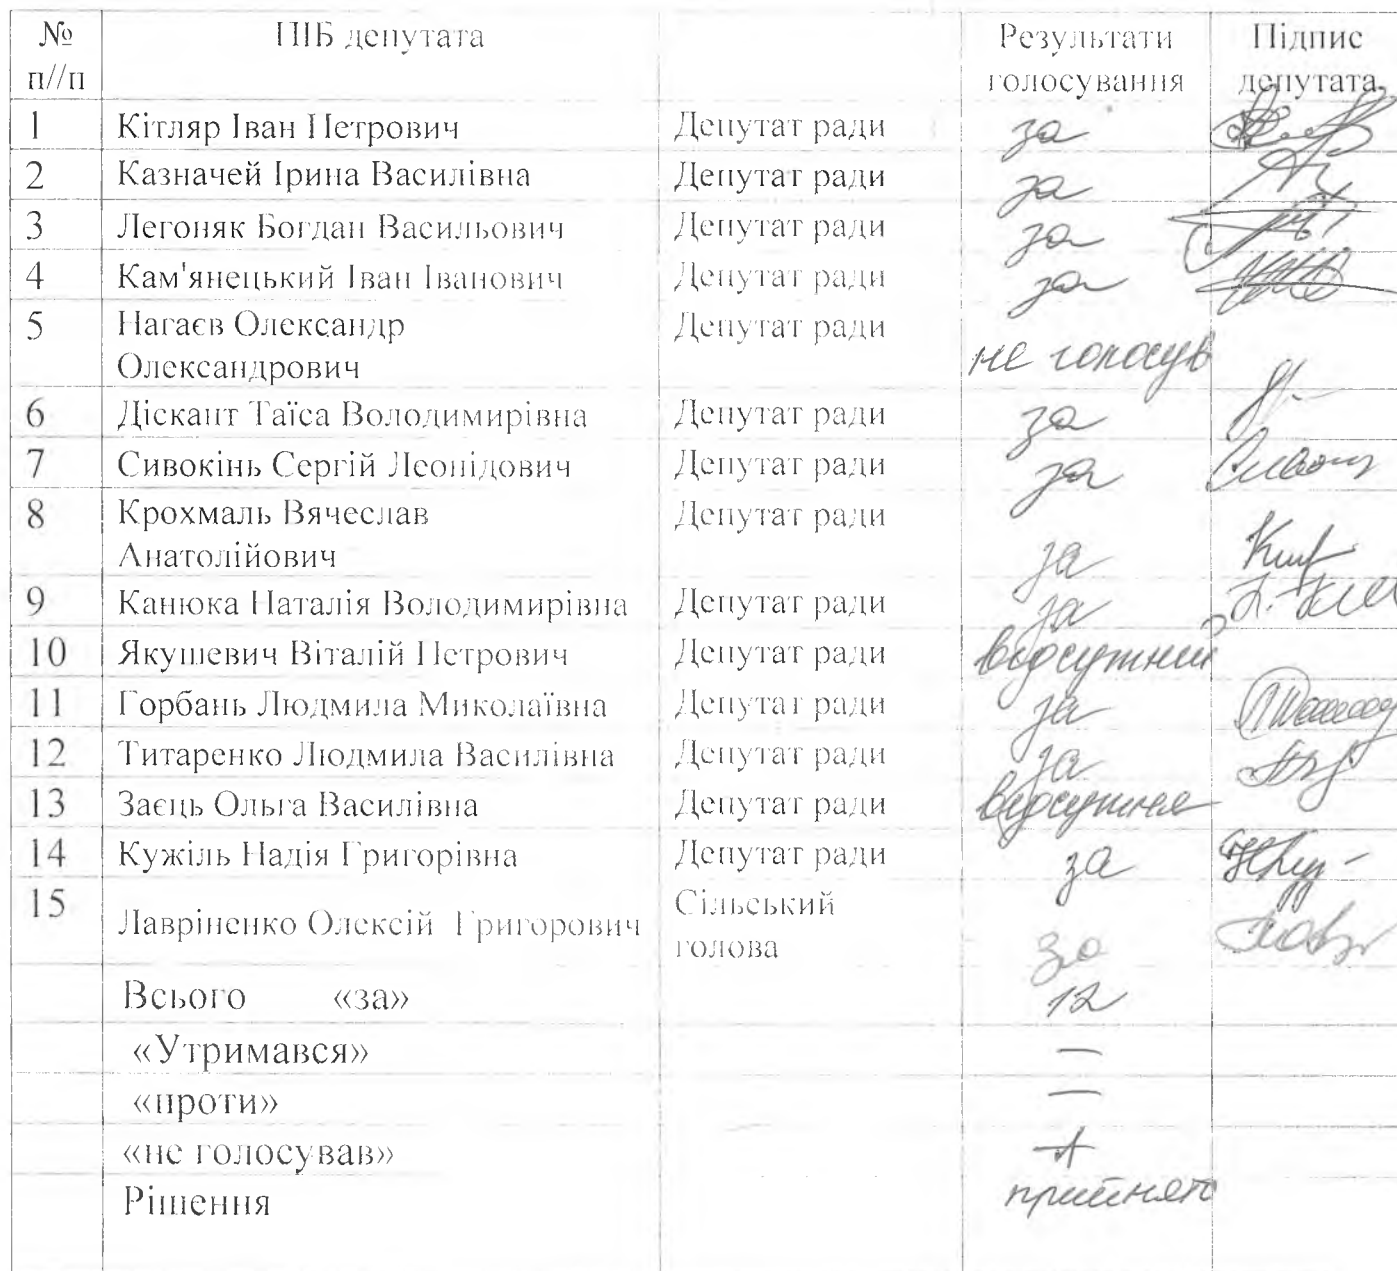 № п//п ПІБ депутата Результати голосування Підпис депутата
1 Кітляр Іван Петрович Депутат ради за
2 Казначей Ірина Василівна Депутат ради за
3 Легоняк Богдан Васильович Депутат ради за
4 Кам'янецький Іван Іванович Депутат ради за
5 Нагаєв Олександр Депутат ради
Олександрович не голосув
6 Діскант Таїса Володимирівна Депутат ради за
7 Сивокінь Сергій Леонідович Депутат ради за
8 Крохмаль Вячеслав Депутат ради
Анатолійович за
9 Канюка Наталія Володимирівна Депутат ради за
10 Якушевич Віталій Петрович Депутат ради відсутний
11 Горбань Людмила Миколаївна Депутат ради за
12 Титаренко Людмила Василівна Депутат ради за
13 Заєць Ольга Василівна Депутат ради відсутня
14 Кужіль Надія Григорівна Депутат ради за
15 Лавріненко Олексій Григорович Сільський голова за
Всього «за» 12
«Утримався» —
«проти» —
«не голосував»
Рішення прийнято